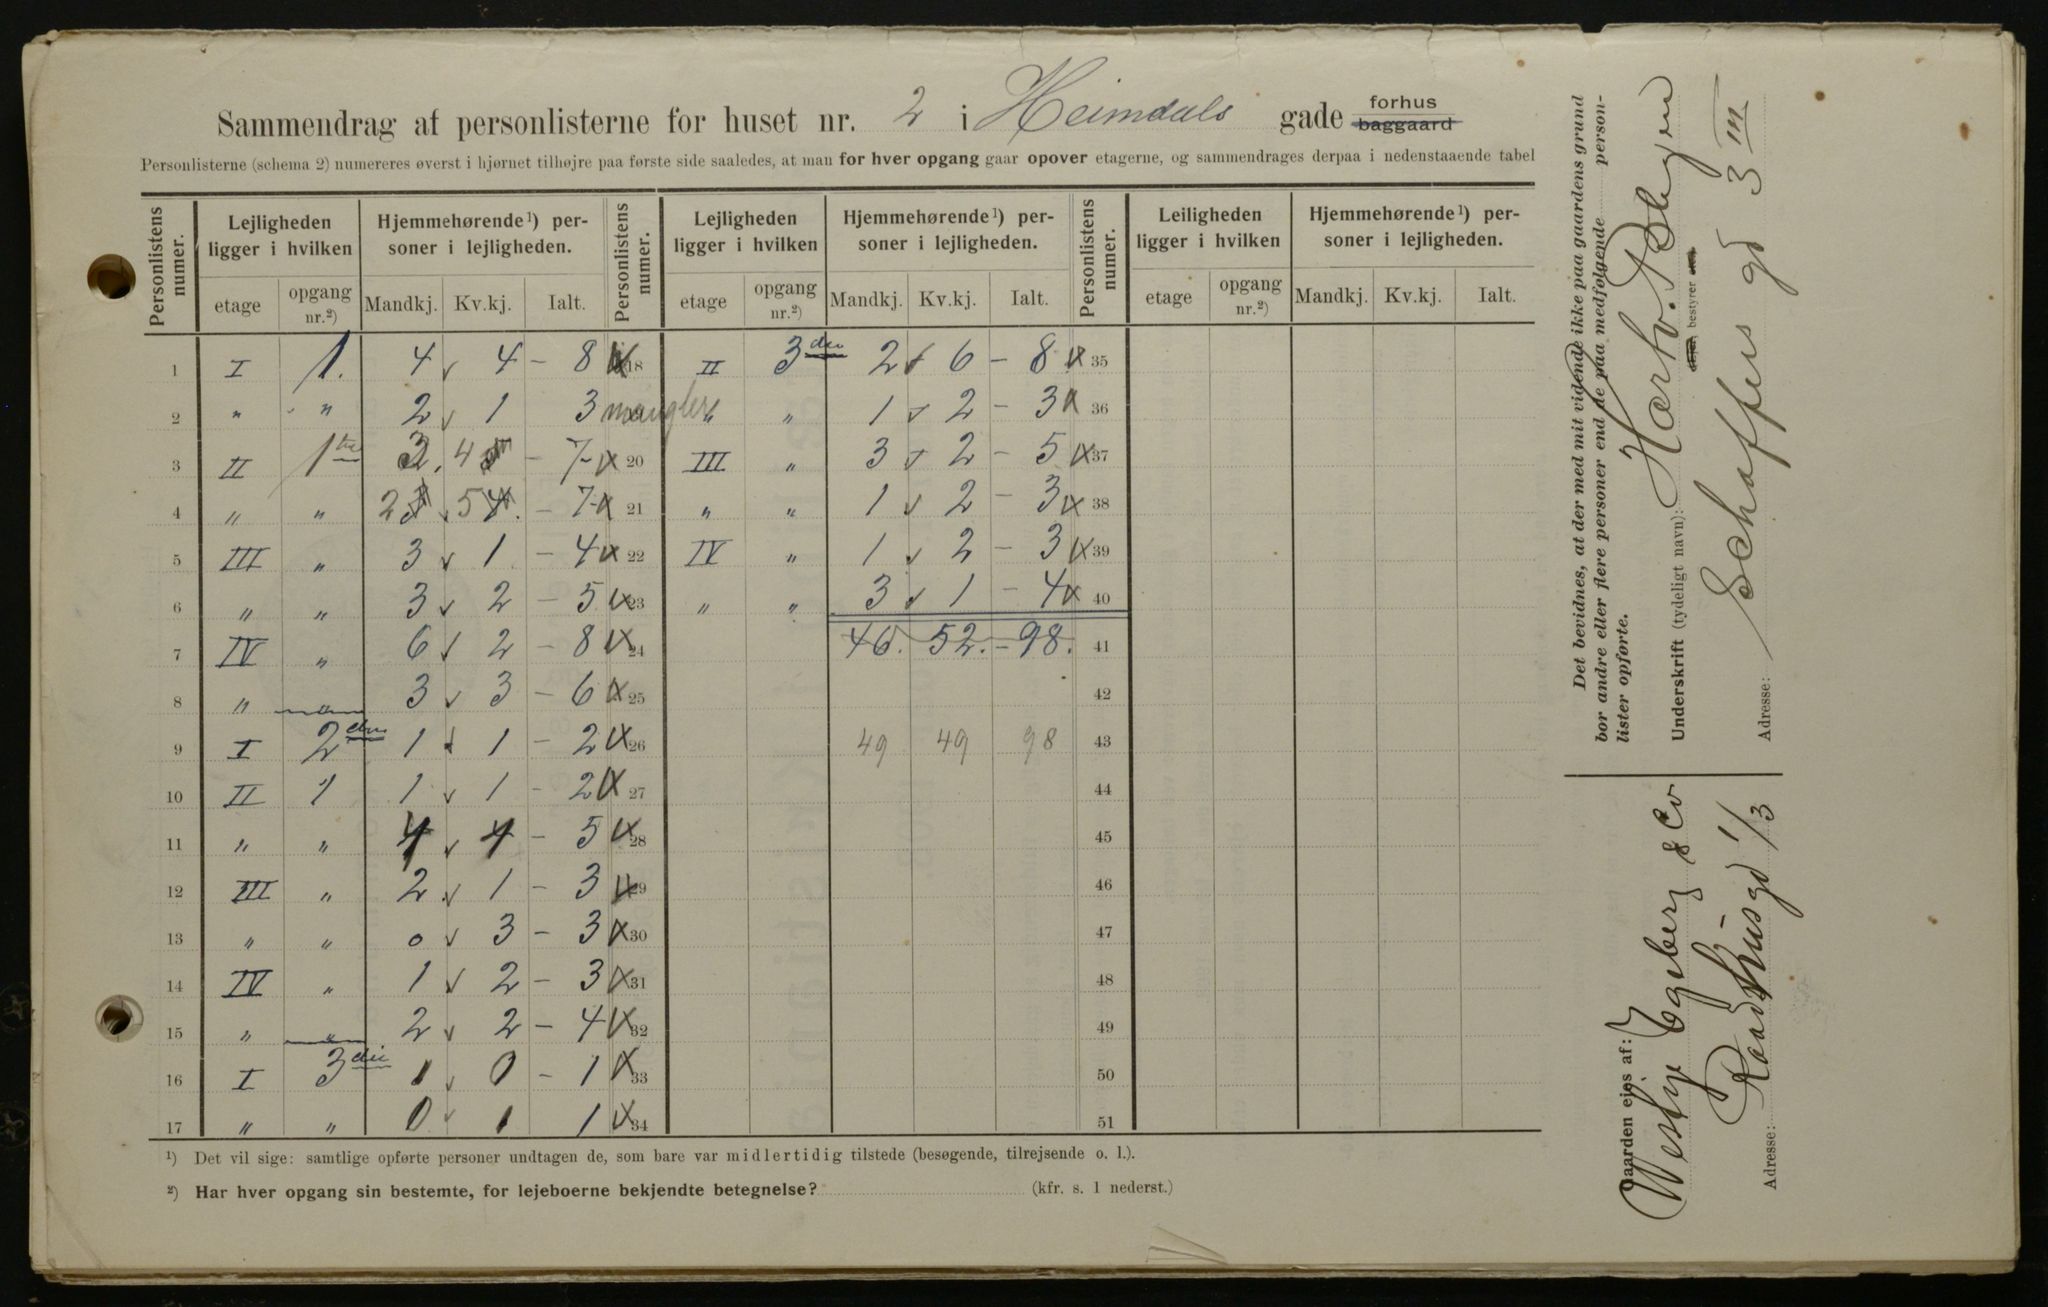 Sammendrag af personlisterne for huset nr. 2 i Heimdals gade forhus baggaard
Personlisterne (schema 2) numereres øverst i hjørnet tilhøjre paa første side saaledes, at man for hver opgang gaar opover etagerne, og sammendrages derpaa i nedenstaaende tabel
Personlistens numer. Lejligheden ligger i hvilken Hjemmehørende¹) personer i lejligheden. Personlistens numer. Lejligheden ligger i hvilken Hjemmehørende¹) personer i lejligheden. Personlistens numer. Leiligheden ligger i hvilken Hjemmehørende¹) personer i lejligheden.
etage opgang nr.²) Mandkj. Kv.kj. Ialt. etage opgang nr.²) Mandkj. Kv.kj. Ialt. etage opgang nr.²) Mandkj. Kv.kj. Ialt.
1 I 1. 4 4 - 8 18 II 3 2 6 - 8 35
2 " " 2 1 3 mangler " " 1 2 - 3 36
3 II 1ste 3 4 - 7 20 III " 3 2 - 5 37
4 " " 2 5 - 7 21 " " 1 2 - 3 38
5 III " 3 1 - 4 22 IV " 1 2 - 3 39
6 " " 3 2 - 5 23 " " 3 1 - 4 40
7 IV " 6 2 - 8 24 46. 52. - 98. 41
8 " " 3 3 - 6 25 42
9 I 2den 1 1 - 2 26 49 49 98 43
10 II " 1 1 - 2 27 44
11 " " 4 - 5 28 45
12 III " 2 1 - 3 29 46
13 " " 0 3 - 3 30 47
14 IV " 1 2 - 3 31 48
15 " " 2 2 - 4 32 49
16 I 3die 1 0 - 1 33 50
17 " " 0 1 1 34 51
¹) Det vil sige: samtlige opførte personer undtagen de, som bare var midlertidig tilstede (besøgende, tilrejsende o. l.).
²) Har hver opgang sin bestemte, for lejeboerne bekjendte betegnelse? (kfr. s. 1 nederst.)
Det bevidnes, at der med mit vidende ikke paa gaardens grund
bor andre eller flere personer end de paa medfølgende person-
lister opførte.
Underskrift (tydeligt navn):
bestyrer
Adresse: Schaffers gd 3 III
Gaarden ejes af: Westye Egeberg & Co
Adresse: Raadhusgd 1/3